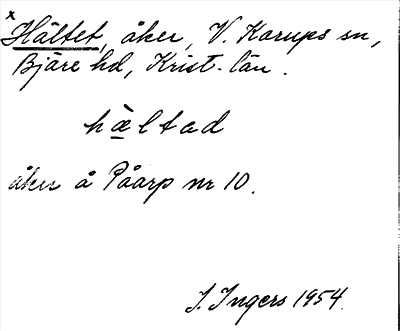 x
Hältet, åker, V. Karups sn,
Bjäre hd, Krist. län.
hæltad
åker å Påarp nr 10.
I. Ingers 1954.